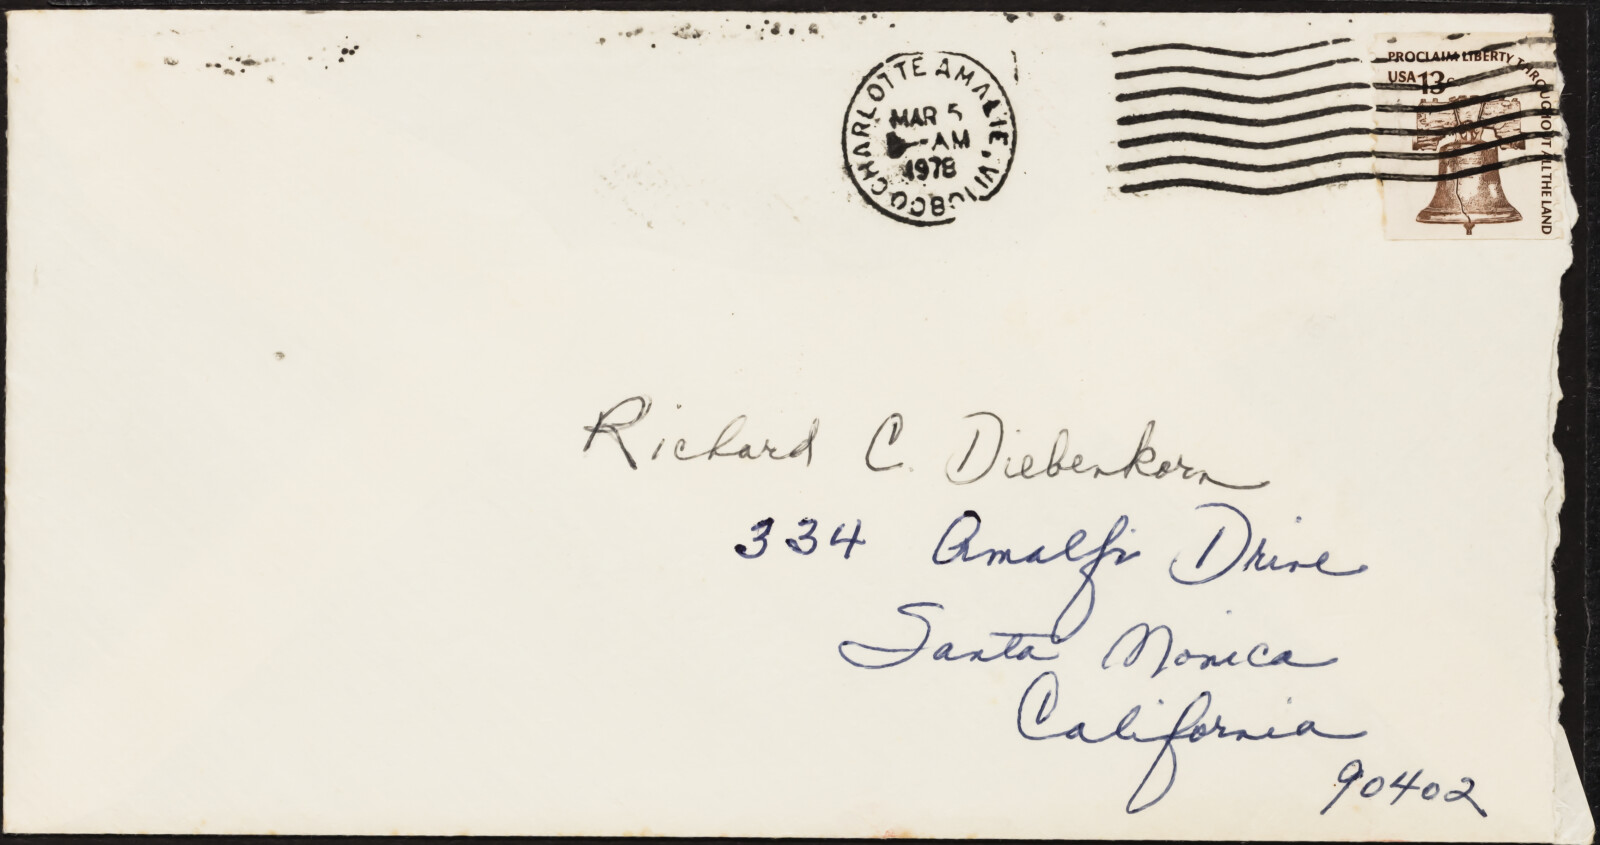 CHARLOTTE AMALIE, VI
MAR 5
AM
1978
PROCLAIM LIBERTY THROUGHOUT ALL THE LAND
USA 13c
Richard C. Diebenkorn
334 Amalfi Drive
Santa Monica
California
90402